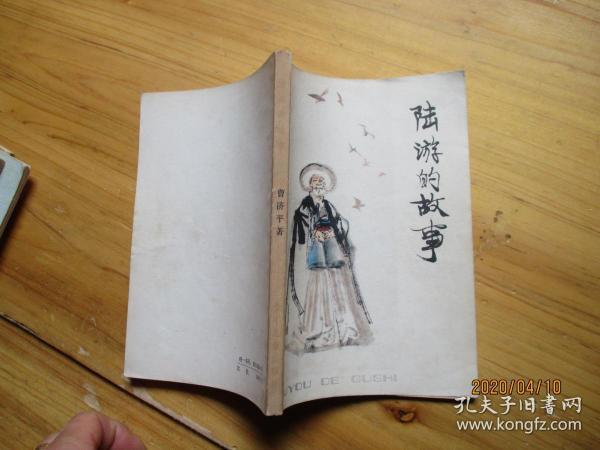 陆游的故事
曹济平著
YOU DE GUSHI
2020/04/10
孔夫子旧书网
www.kongfz.com